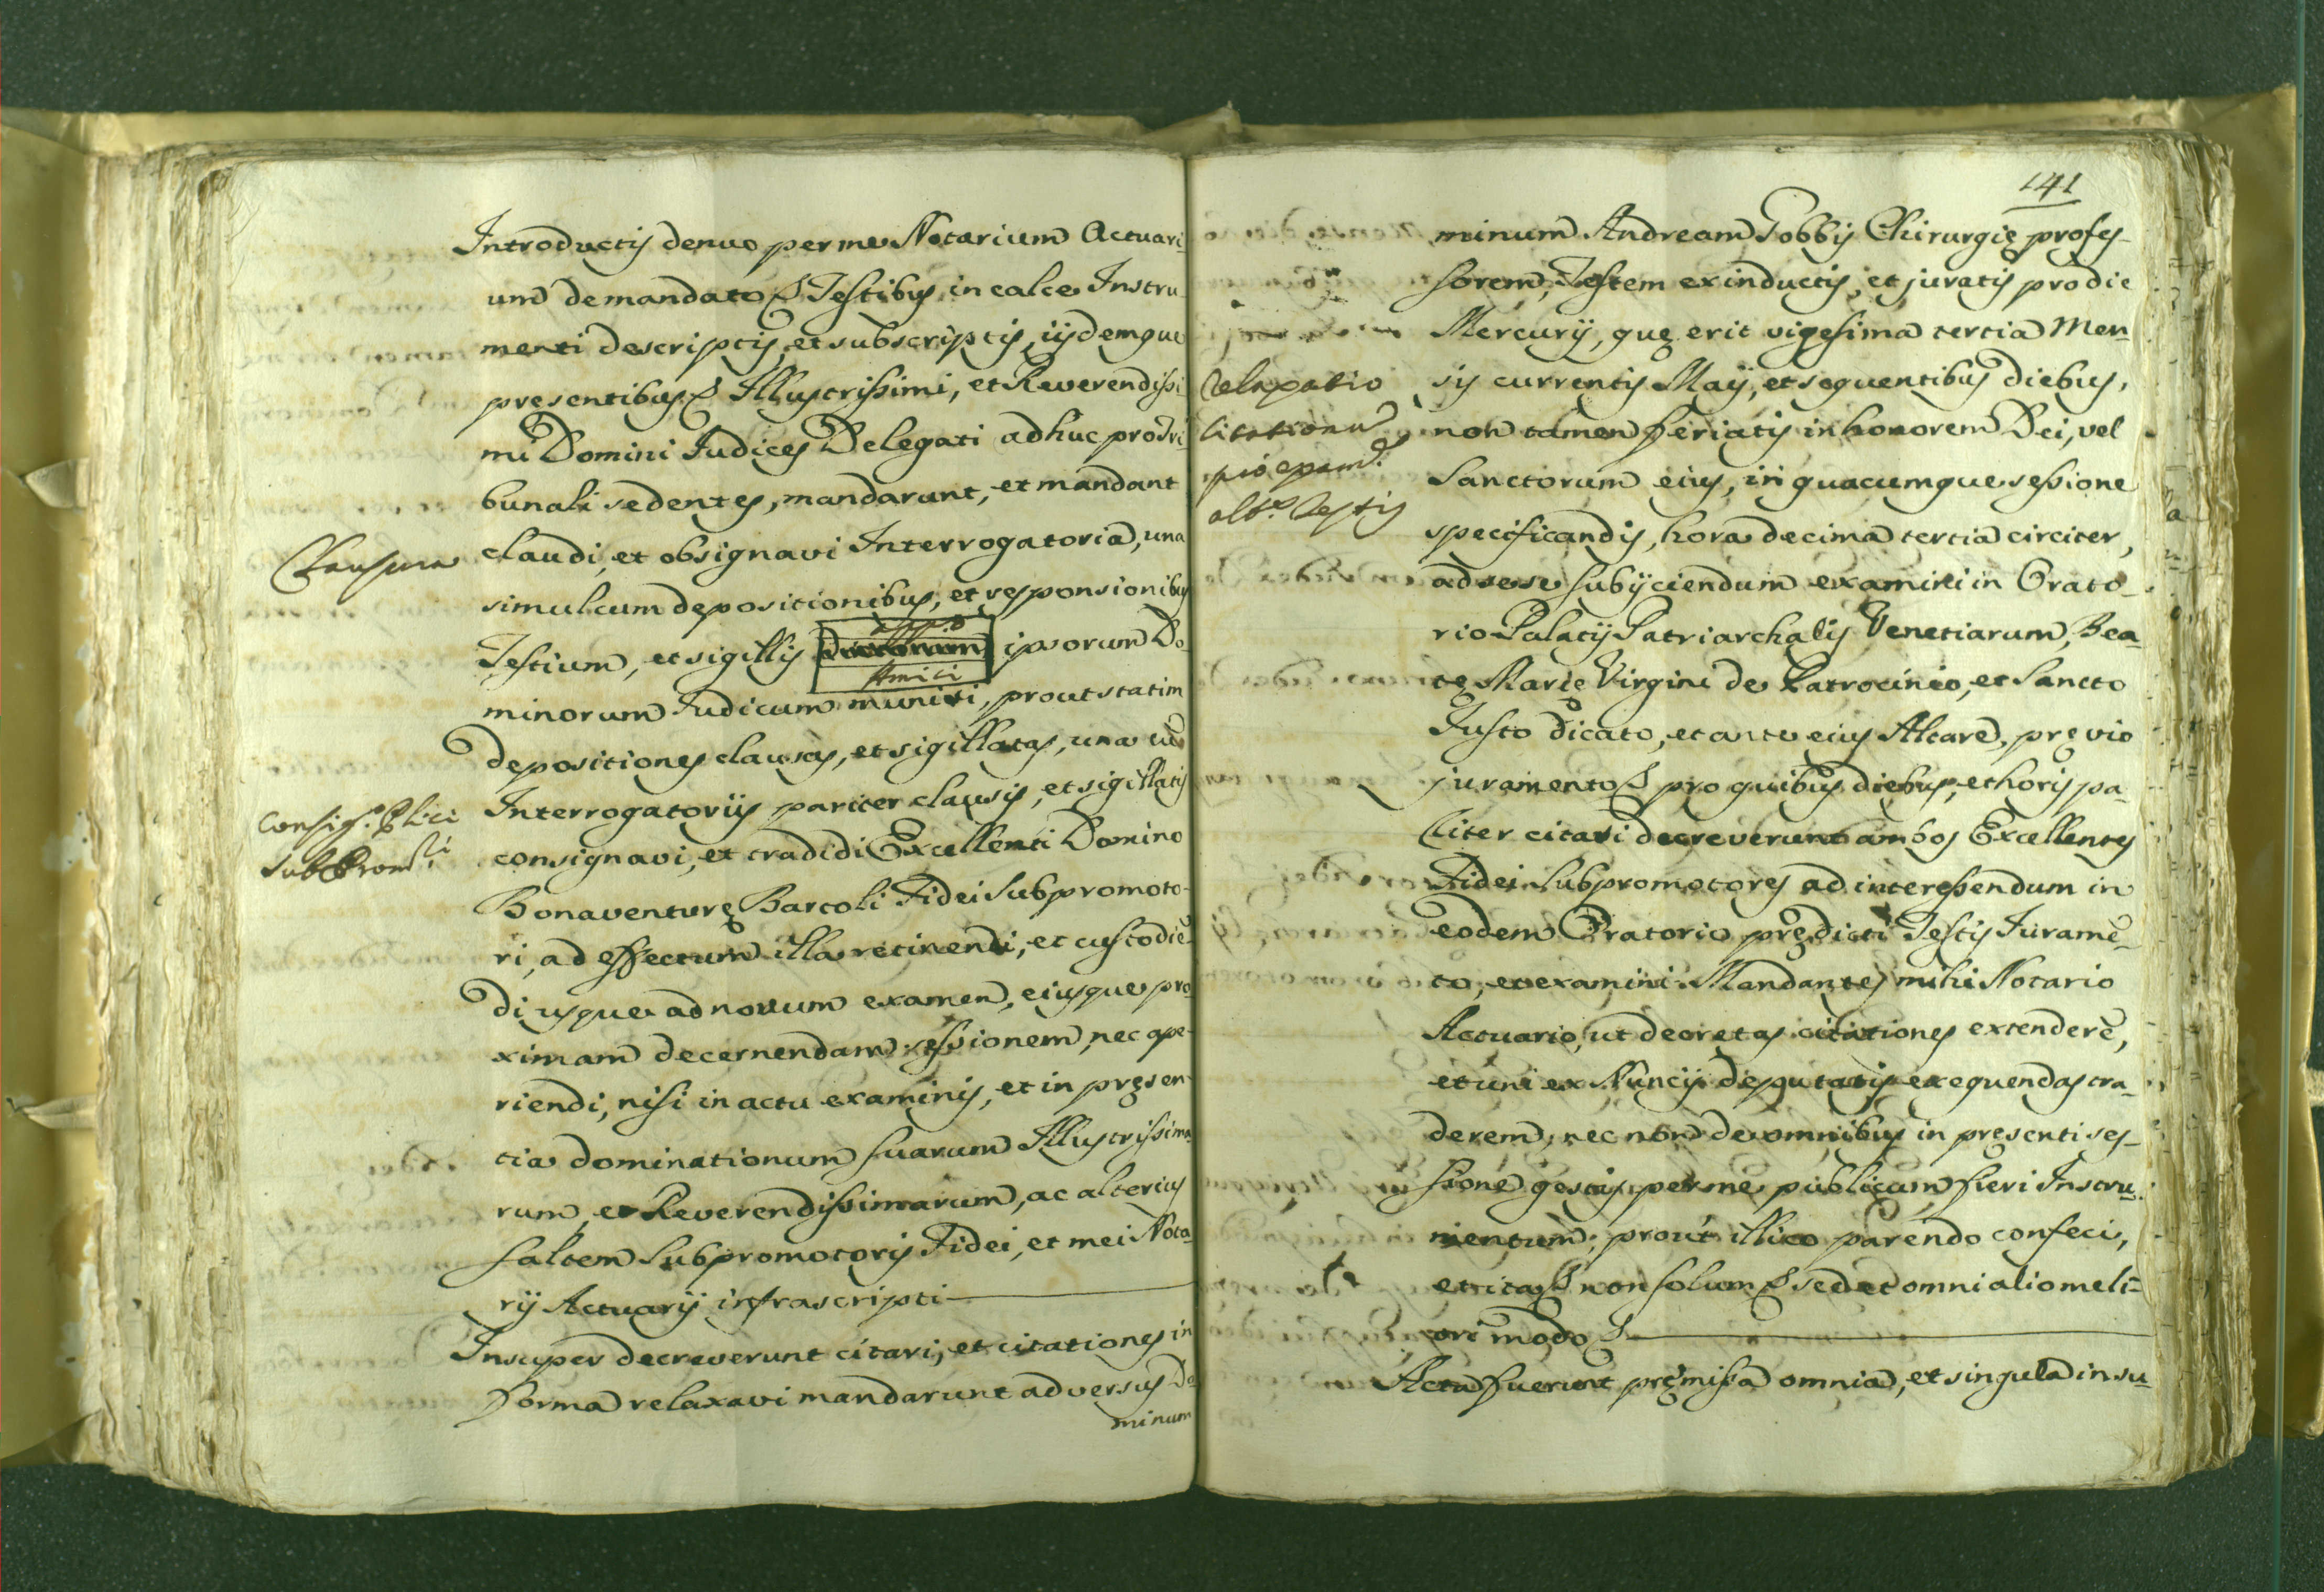 Introductis denuo per me Notarium Actuari-
um de mandato &. Testibus in calce Instru-
menti descriptis, et subscriptis, iisdemque
presentibus &. Illustrissimi, et Reverendissi-
mi Domini Iudices Delegati adhuc pro Tri-
bunali sedentes, mandarunt, et mandant
Clausura
claudi, et obsignavi Interrogatoria, una
simul cum depositionibus, et responsionibus
Testium, et sigillis ipsorum Do-
Amici
minorum Iudicum muniri, prout statim
depositiones clausas, et sigillatas, una cũ
Consig.^e Plici
Subprom.^ri
Interrogatoriis pariter clausis, et sigillatis
consignavi, et tradidi Excellenti Domino
Bonaventurę Bartoli Fidei Subpromoto-
ri, ad effectum illa retinendi, et custodiẽ-
di usque ad novum examen, eiusque pro-
ximam decernendam sessionem, nec ape-
riendi, nisi in actu examinis, et in pręsen-
tia dominationum suarum Illustrissima-
rum, et Reverendissimarum, ac alterius
saltem Subpromotoris Fidei, et mei Nota-
rij Actuarij infrascripti
Insuper decreverunt citari, et citationes in
forma relaxavi mandarunt adversus Do-
minum
141
minum Andream Gobbis Chirurgię profes-
sorem, Testem ex inductis, et juratis pro die
Mercurij, quę erit vigesima tertia Men-
Relaxatio
citationũ
pro exam.^e
alt.^s Testis
sis currentis Maij, et sequentibus diebus,
non tamen feriatis in honorem Dei, vel
Sanctorum eius, in quacumque sessione
specificandis, hora decima tertia circiter,
ad sese subijciendum examini in Orato-
rio Palatij Patriarchalis Venetiarum, Bea-
tę Marię Virgini de Patrocinio, et Sancto
Iusto dicato, et ante eius Altare, pręvio
juramento &. pro quibus diebus, et horis pa-
riter citari decreverunt ambos Excellentes
Fidei Subpromotores ad interessendum in
eodem Oratorio prędicti Testis Iuramẽ-
to, et examini. Mandantes mihi Notario
Actuario, ut decretas citationes extenderẽ,
et uni ex Nuncijs deputatis exequendas tra-
derem, nec non de omnibus in pręsenti ses-
sione gestis per me publicum fieri Instru-
mentum; prout illico parendo confeci,
et ita &. non solum &. sed et omni alio meli-
ori modo &.
Acta fuerunt pręmissa omnia, et singula in su-